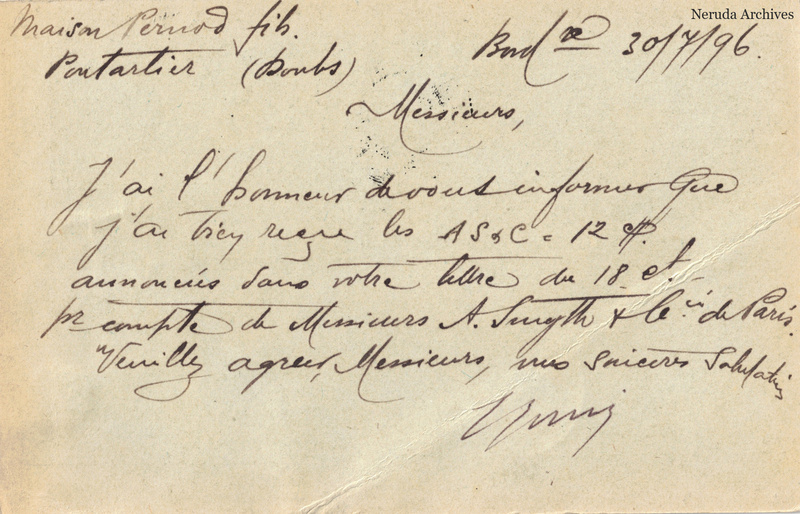 Neruda Archives
Maison Pernod fils.
Pontarlier (Doubs)
Bord 30/7/96.
Messieurs,
J'ai l'honneur de vous informer que
j'ai bien reçu les AS&C = 12
annoncés dans votre lettre du 18 ct
pr compte de Messieurs A. Smyth & Cie de Paris.
Veuillez agréer, Messieurs, mes sincères salutations